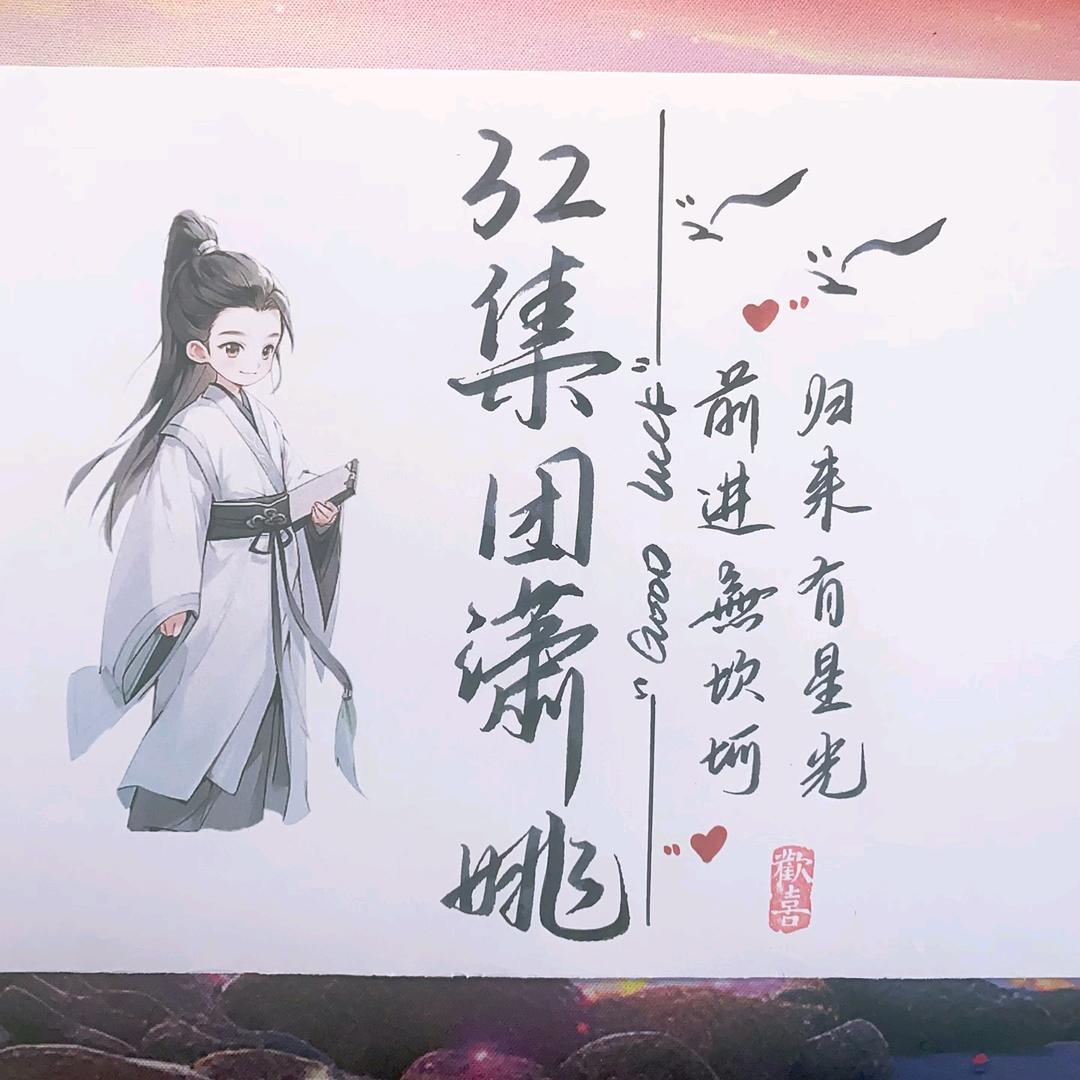 红集团潇姚
"Good Luck"
前进無坎坷
归来有星光
歡喜